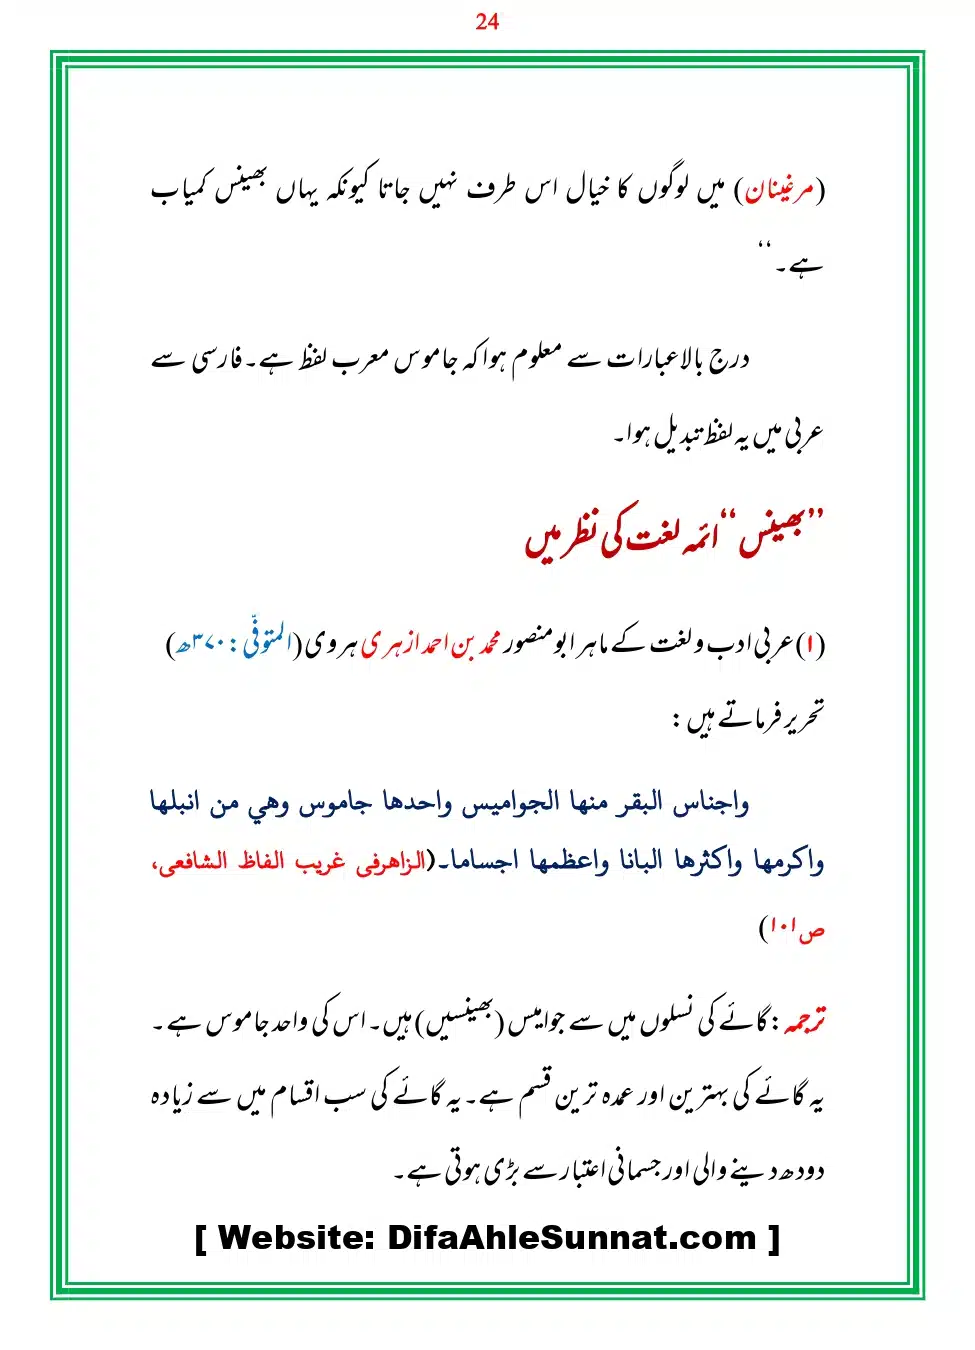 24
(مرغینان) میں لوگوں کا خیال اس طرف نہیں جاتا کیونکہ یہاں بھینس کمیاب
ہے۔‘‘
درج بالا عبارات سے معلوم ہوا کہ جاموس معرب لفظ ہے۔ فارسی سے
عربی میں یہ لفظ تبدیل ہوا۔
’’بھینس‘‘ ائمہ لغت کی نظر میں
(۱) عربی ادب و لغت کے ماہر ابو منصور محمد بن احمد ازہری ہروی (المتوفّٰی: ۳۷۰ھ)
تحریر فرماتے ہیں:
واجناس البقر منها الجواميس واحدها جاموس وهي من انبلها
واكرمها واكثرها البانا واعظمها اجساما۔(الزاهرفی غریب الفاظ الشافعی،
ص۱۰۱)
ترجمہ: گائے کی نسلوں میں سے جوامیس (بھینسیں) ہیں۔ اس کی واحد جاموس ہے۔
یہ گائے کی بہترین اور عمدہ ترین قسم ہے۔ یہ گائے کی سب اقسام میں سے زیادہ
دودھ دینے والی اور جسمانی اعتبار سے بڑی ہوتی ہے۔
[ Website: DifaAhleSunnat.com ]